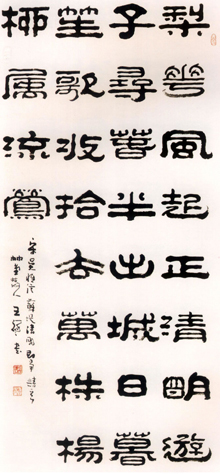 梨花風起正清明遊
子尋春半出城日暮
笙歌收拾去萬株楊
柳属流鶯
宋吳惟信蘇堤清明即事